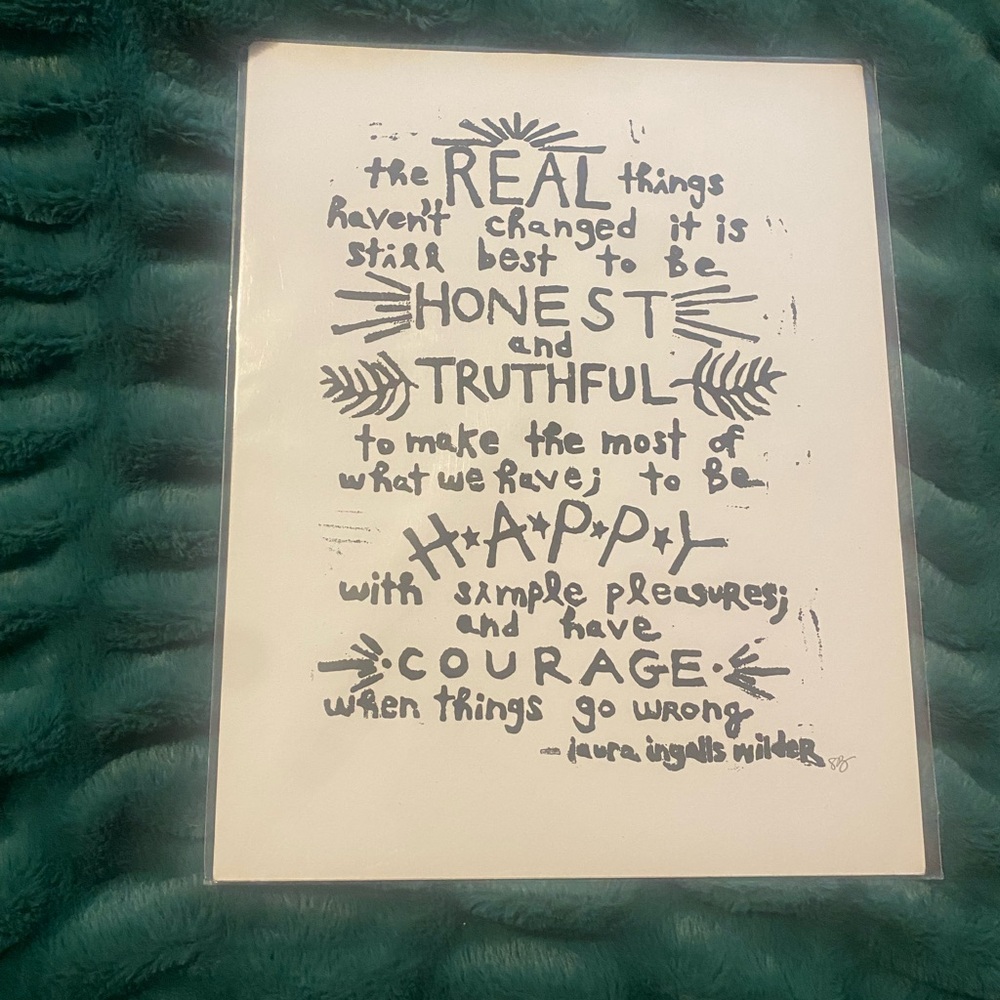 the REAL things
haven't changed it is
still best to be
HONEST
and
TRUTHFUL
to make the most of
what we have; to be
H★A★P★P★Y
with simple pleasures;
and have
COURAGE
when things go wrong
- laura ingalls wilder